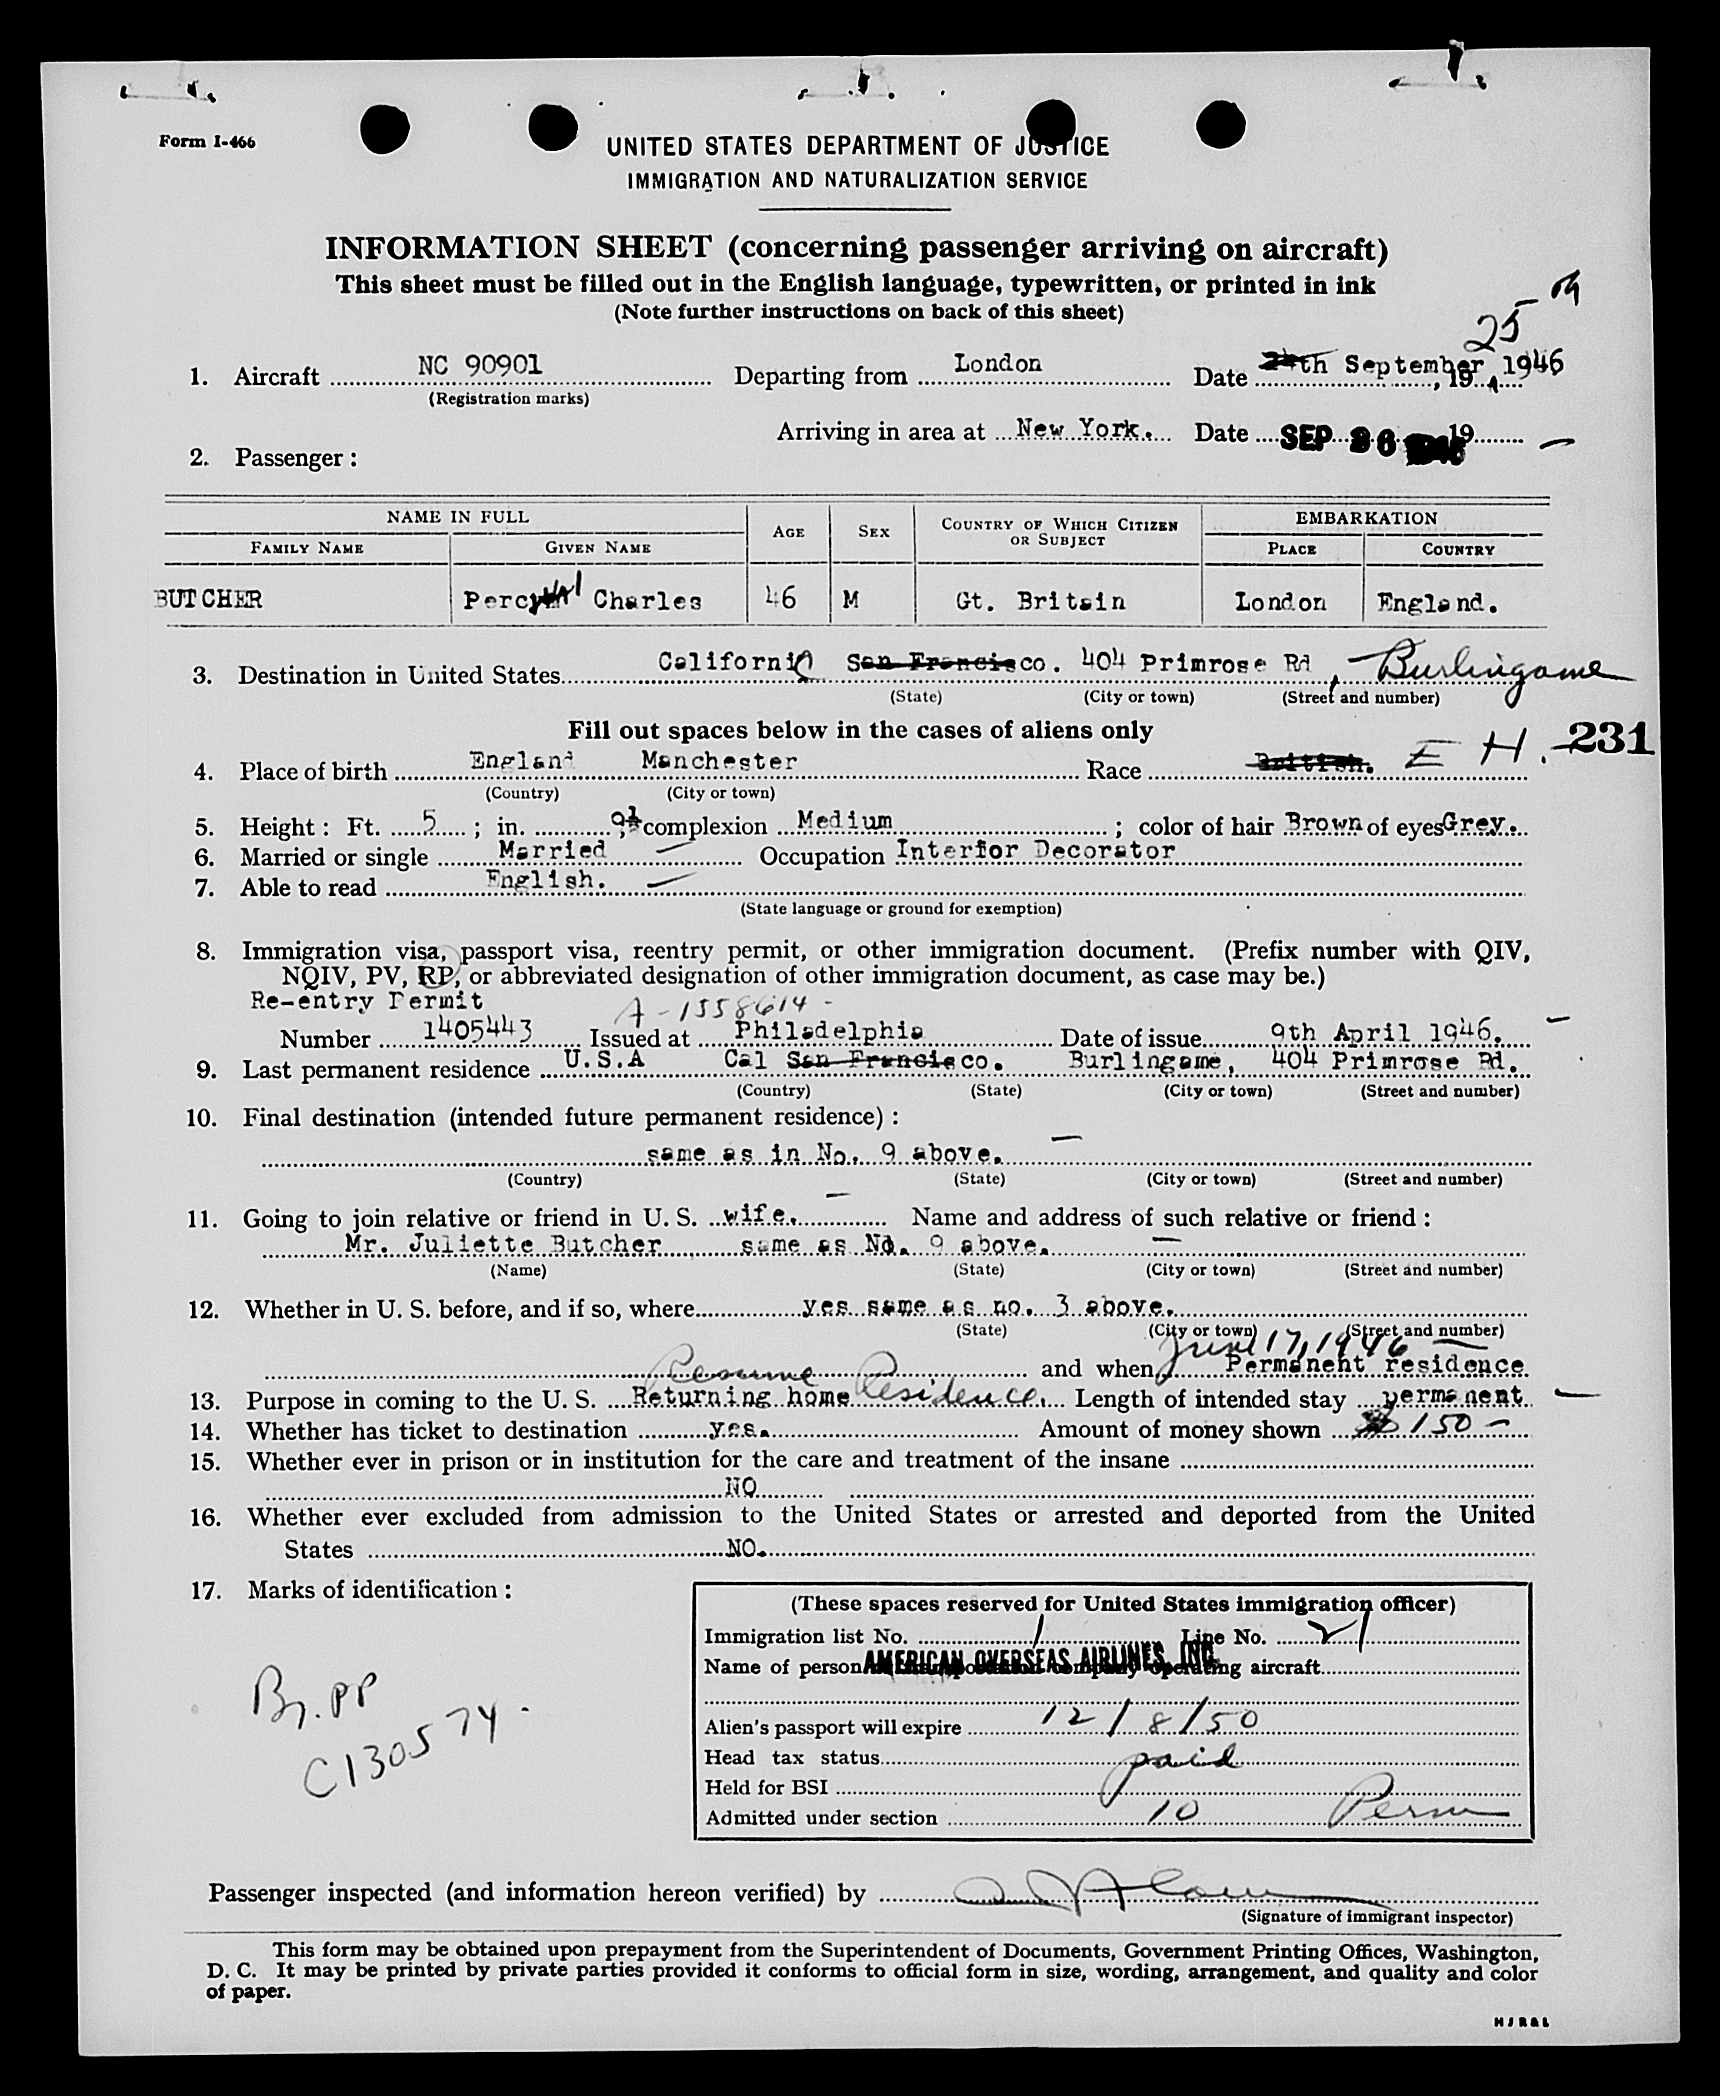 Form I-466
UNITED STATES DEPARTMENT OF JUSTICE
IMMIGRATION AND NATURALIZATION SERVICE
INFORMATION SHEET (concerning passenger arriving on aircraft)
This sheet must be filled out in the English language, typewritten, or printed in ink
(Note further instructions on back of this sheet)
25
1. Aircraft NC 90901 Departing from London Date 24th September, 19 1946
(Registration marks)
Arriving in area at New York. Date SEP 26 1946 19
2. Passenger:
NAME IN FULL AGE SEX COUNTRY OF WHICH CITIZEN OR SUBJECT EMBARKATION
FAMILY NAME GIVEN NAME PLACE COUNTRY
BUTCHER Percy Charles 46 M Gt. Britain London England.
3. Destination in United States California San Francisco. 404 Primrose Rd, Burlingame
(State) (City or town) (Street and number)
Fill out spaces below in the cases of aliens only
231
4. Place of birth England Manchester Race British. E H.
(Country) (City or town)
5. Height: Ft. 5; in. 9½; complexion Medium; color of hair Brown of eyes Grey.
6. Married or single Married Occupation Interior Decorator
7. Able to read English.
(State language or ground for exemption)
8. Immigration visa, passport visa, reentry permit, or other immigration document. (Prefix number with QIV,
NQIV, PV, RP, or abbreviated designation of other immigration document, as case may be.)
Re-entry Permit A-1558614-
Number 1405443 Issued at Philadelphia Date of issue 9th April 1946.
9. Last permanent residence U.S.A Cal San Francisco. Burlingame, 404 Primrose Rd.
(Country) (State) (City or town) (Street and number)
10. Final destination (intended future permanent residence):
same as in No. 9 above.
(Country) (State) (City or town) (Street and number)
11. Going to join relative or friend in U. S. wife. Name and address of such relative or friend:
Mr. Juliette Butcher same as No. 9 above.
(Name) (State) (City or town) (Street and number)
12. Whether in U. S. before, and if so, where yes same as no. 3 above.
(State) (City or town) (Street and number)
June 17, 1946
Resume and when Permanent residence
13. Purpose in coming to the U. S. Returning home Residence. Length of intended stay permanent
14. Whether has ticket to destination yes. Amount of money shown $150-
15. Whether ever in prison or in institution for the care and treatment of the insane
NO
16. Whether ever excluded from admission to the United States or arrested and deported from the United
States NO.
17. Marks of identification:
Br. PP
C130574.
(These spaces reserved for United States immigration officer)
Immigration list No. 1 Line No. 21
Name of person AMERICAN OVERSEAS AIRLINES, INC. operating aircraft
Alien's passport will expire 12/8/50
Head tax status paid
Held for BSI
Admitted under section 10 Perm
Passenger inspected (and information hereon verified) by
(Signature of immigrant inspector)
This form may be obtained upon prepayment from the Superintendent of Documents, Government Printing Offices, Washington,
D. C. It may be printed by private parties provided it conforms to official form in size, wording, arrangement, and quality and color
of paper.